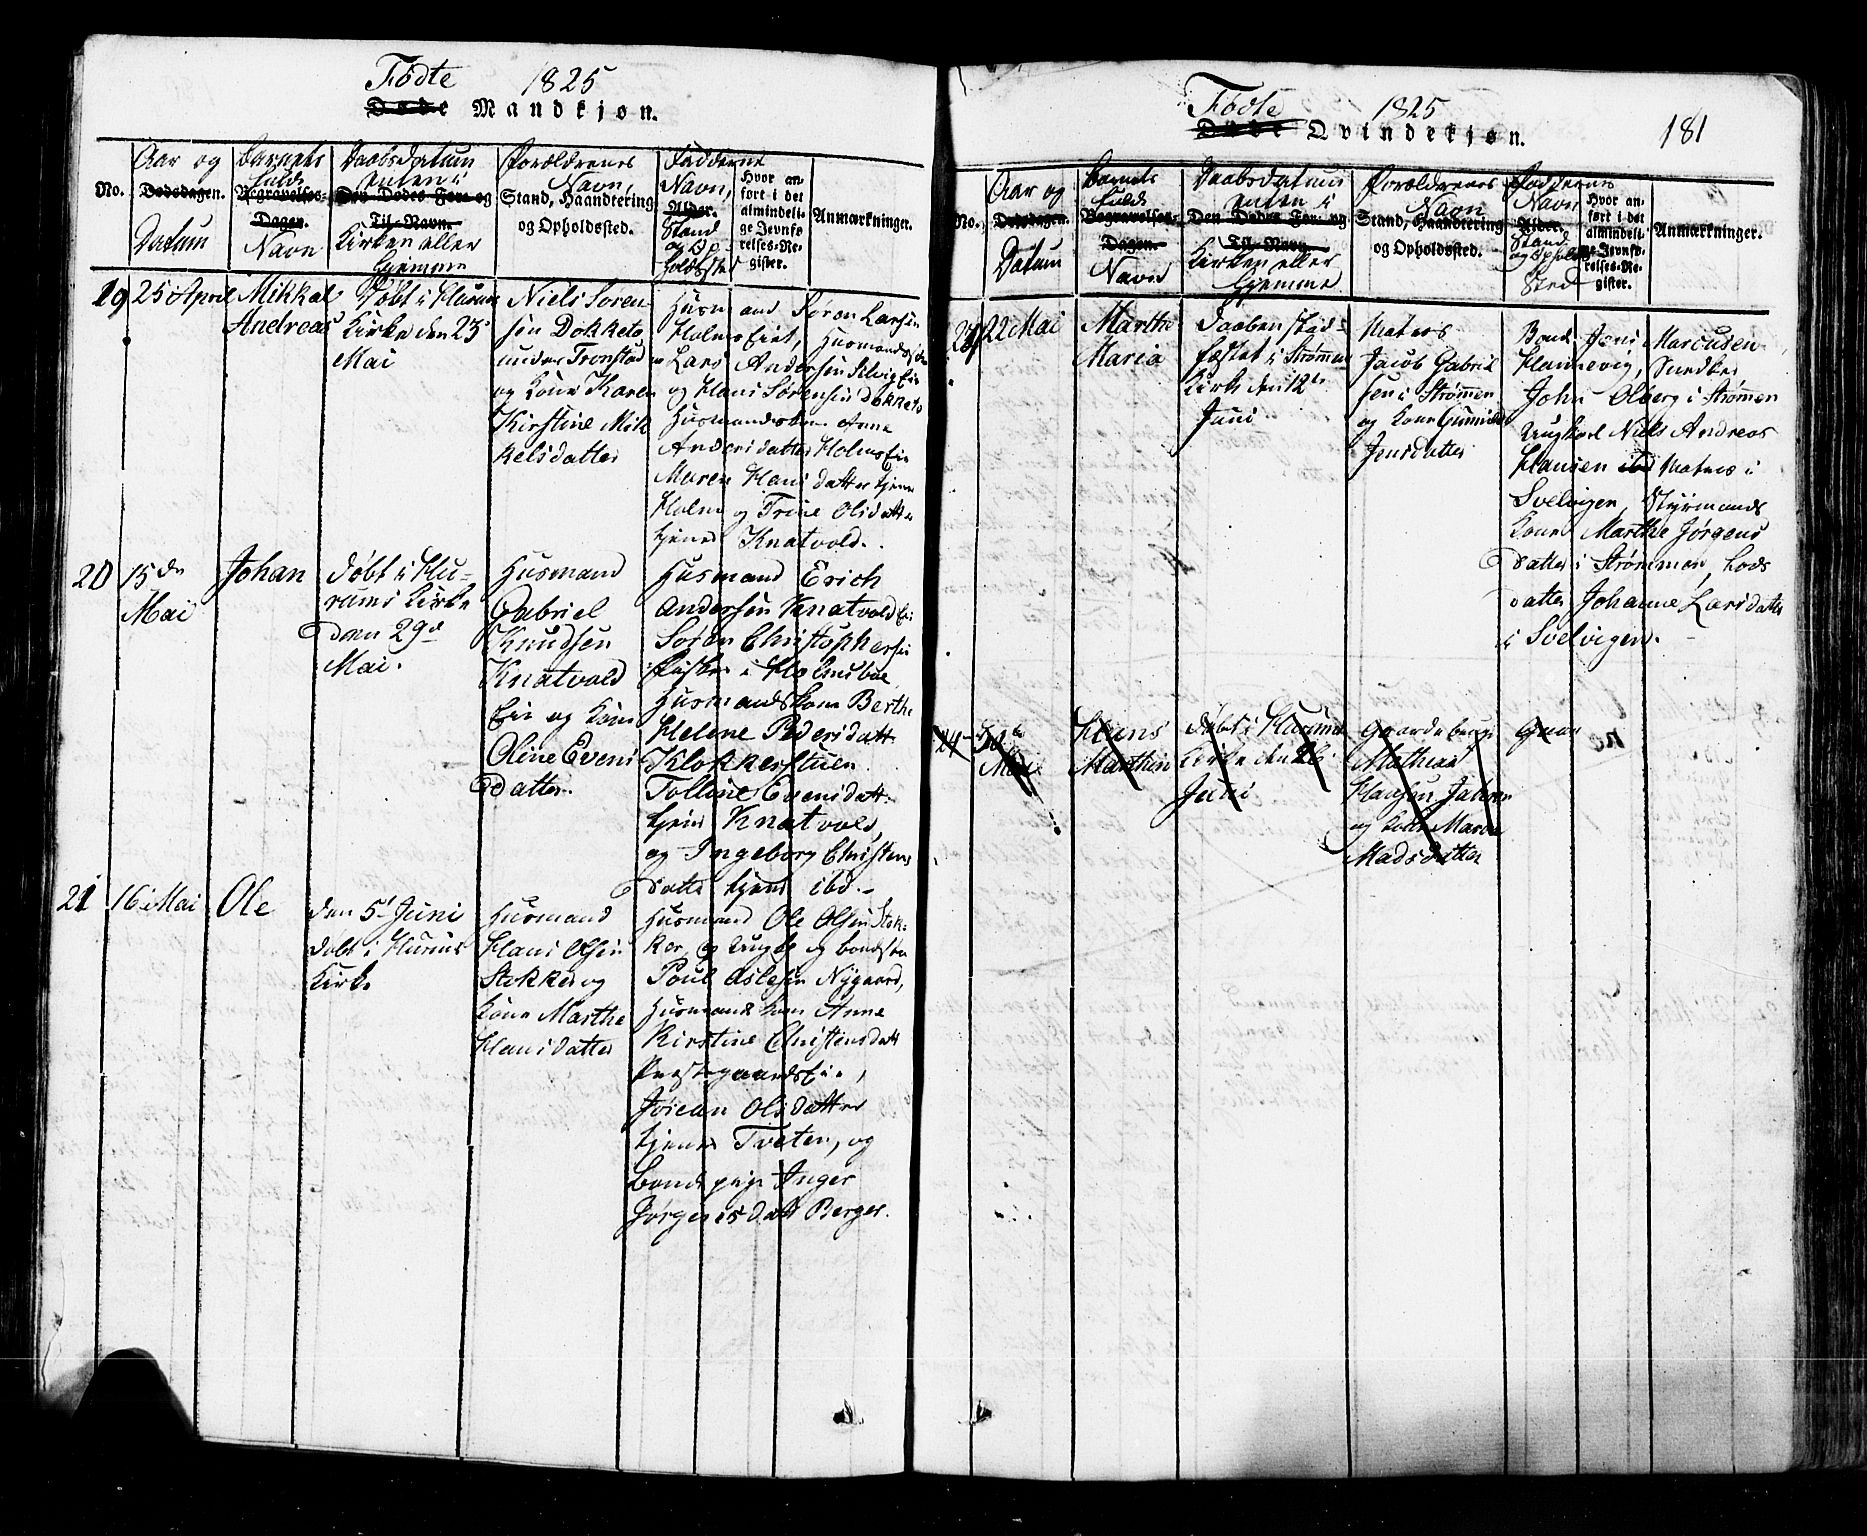 Fødte 1825
Døde Mandkjøn.
No.
Aar og
Dødsdagen.
Datum
Barnets
fulde
Begravelses-
Dagen.
Navn
Daabsdatum
enten i
Den Dødes For- og
Til-Navn.
Kirken eller
hjemme
Forældrenes
Navn,
Stand, Haandtering
og Opholdssted.
Faddernes
Navn,
Alder.
Stand
og Op-
holdssted
Hvor an-
ført i det
almindeli-
ge Jevnfø-
relses-Re-
gister.
Anmærkninger.
19
25 April
Mikkal
Andreas
Døbt i Hurum
Kirke den 23
Mai
Niels Soren
sen Dokketo
under Tronstad
og Kone Karen
Kirstine Mik
kelsdatter
Husmand Søren Larsen
Holms Eiet, Husmands
Lars Andersen Selvig Eie
og Hans Sørensen Dokketo
Husmandskone Anne
Andersdatter Holms Eie
Maren Hansdatter tjene
Holm og Trine Olsdatter
tjener Knatvold.
20
15de
Mai
Johan
Døbt i Hu-
rums Kirke
den 29de
Mai.
Husmand
Gabriel
Knudsen
Knatvold
Eie og Kone
Oline Evens
Datter.
Husmand Erich
Andersen Knatvold Eie
Søren Christophersen
Fisker i Holmsboe
Husmandskone Berthe
Helene Pedersdatt.
Klokkerstuen
Tolline Evensdatt.
tjene Knatvold,
og Ingeborg Christens
datter tjene ibd.-
21
16 Mai
Ole
den 5 Juni
døbt i Hurums
Kirke
Husmand
Hans Olsen
Stokker og
Kone Marthe
Hansdatter
Husmand Ole Olsen Stok-
ker, og Ungk. og bondesøn
Poul Aslesen Nygaard,
Husmandskone Anne
Kirstine Christensdatt
Prestegaards Eie,
Jøran Olsdatter
tjener Tveten, og
Bondepige Inger
Jørgensdatt Berger.
Fødte 1825
Døde Qvindekjøn.
181
No.
Aar og
Dødsdagen.
Datum
Barnets
fulde
Begravelses-
Dagen.
Navn
Daabsdatum
enten i
Den Dødes For- og
Til-Navn.
Kirken eller
hjemme
Forældrenes
Navn
Stand, Haandtering
og Opholdssted.
Faddernes
Navn
Alder.
Stand
og Ophold
sted
Hvor an-
ført i det
almindeli-
ge Jevnfø-
relses-Re-
gister.
Anmærkninger.
22 Mai
Marthe
Maria
Daaben stad-
fæstet i Strømm
Kirke den 12te
Juni
Matros
Jacob Gabriel
sen i Strømmen
og Kone Gunnild
Jensdatter
Bonde Jens Marcusen
Hannevig, Snedker
John Olberg i Strømmen
Ungkarl Niels Andreas
Hansen ibd Matros i
Svelvigen, Styrmands
Kone Marthe Jørgens
datter i Strømmen, Lods
datter Johanne Larsdatter
i Svelvigen.
24
30te
Mai
Hans
Marthin
døbt i Hurums
Kirke den 26
Juni
Gaardbruger
Mathias
Hansen
og Kone Maren
Madsdatter